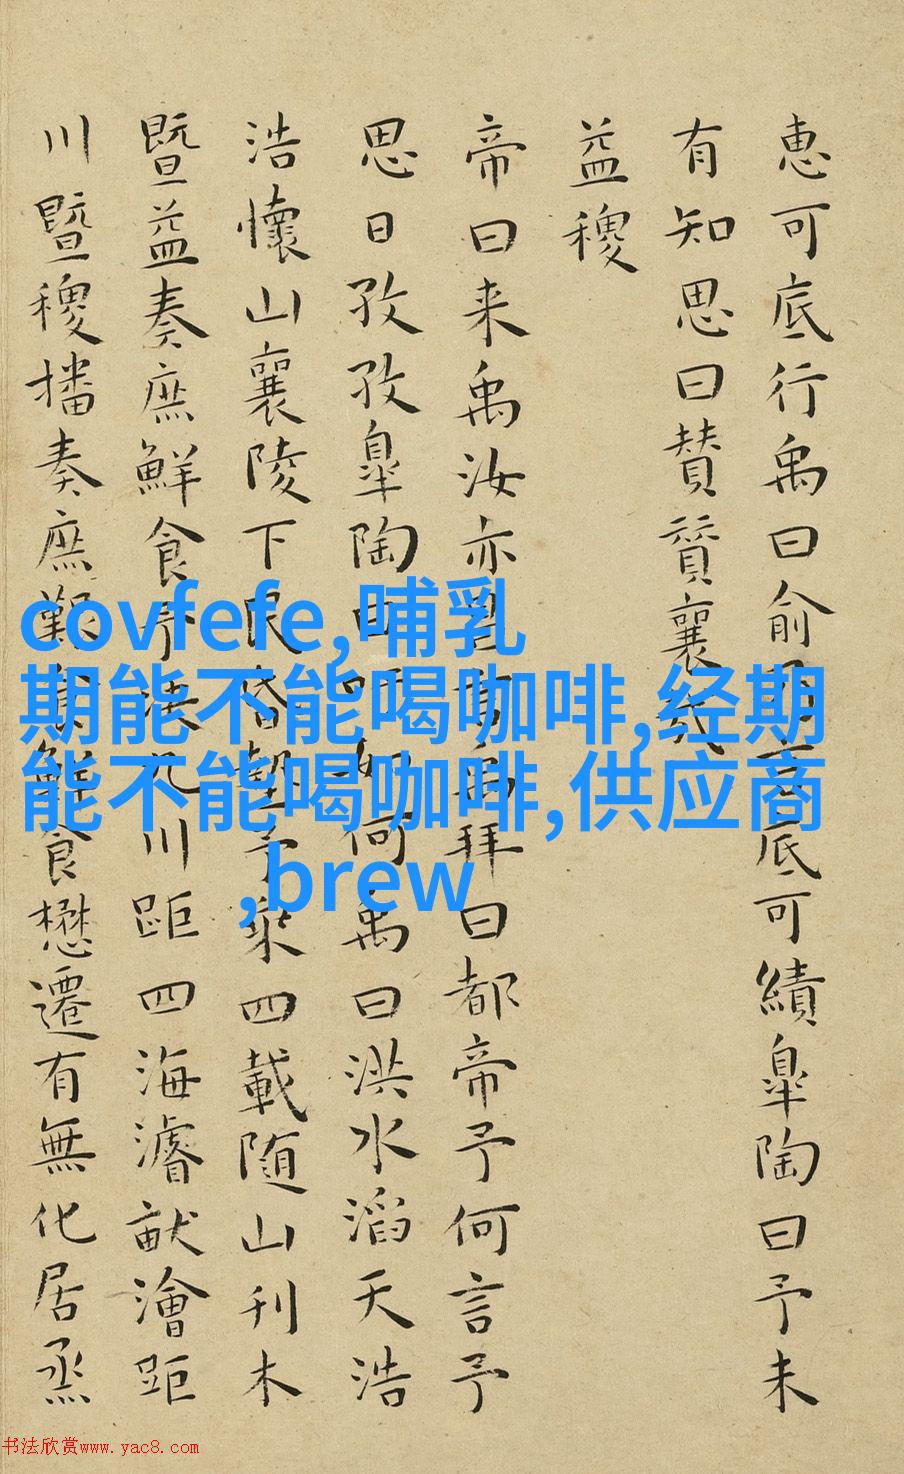 恵可底行禹曰俞乃言底可績皐陶曰予未
有知思曰賛賛襄哉
益稷
帝曰来禹汝亦昌言禹拜曰都帝予何言予
思日孜孜皐陶曰吁如何禹曰洪水滔天浩
浩懷山襄陵下民昏墊予乗四載随山刊木
暨益奏庶鮮食予决九川距四海濬畎澮距
川暨稷播奏庶艱食鮮食懋遷有無化居烝
covfefe,哺乳
期能不能喝咖啡,经期
能不能喝咖啡,供应商
,brew
书法欣赏www.yac8.com